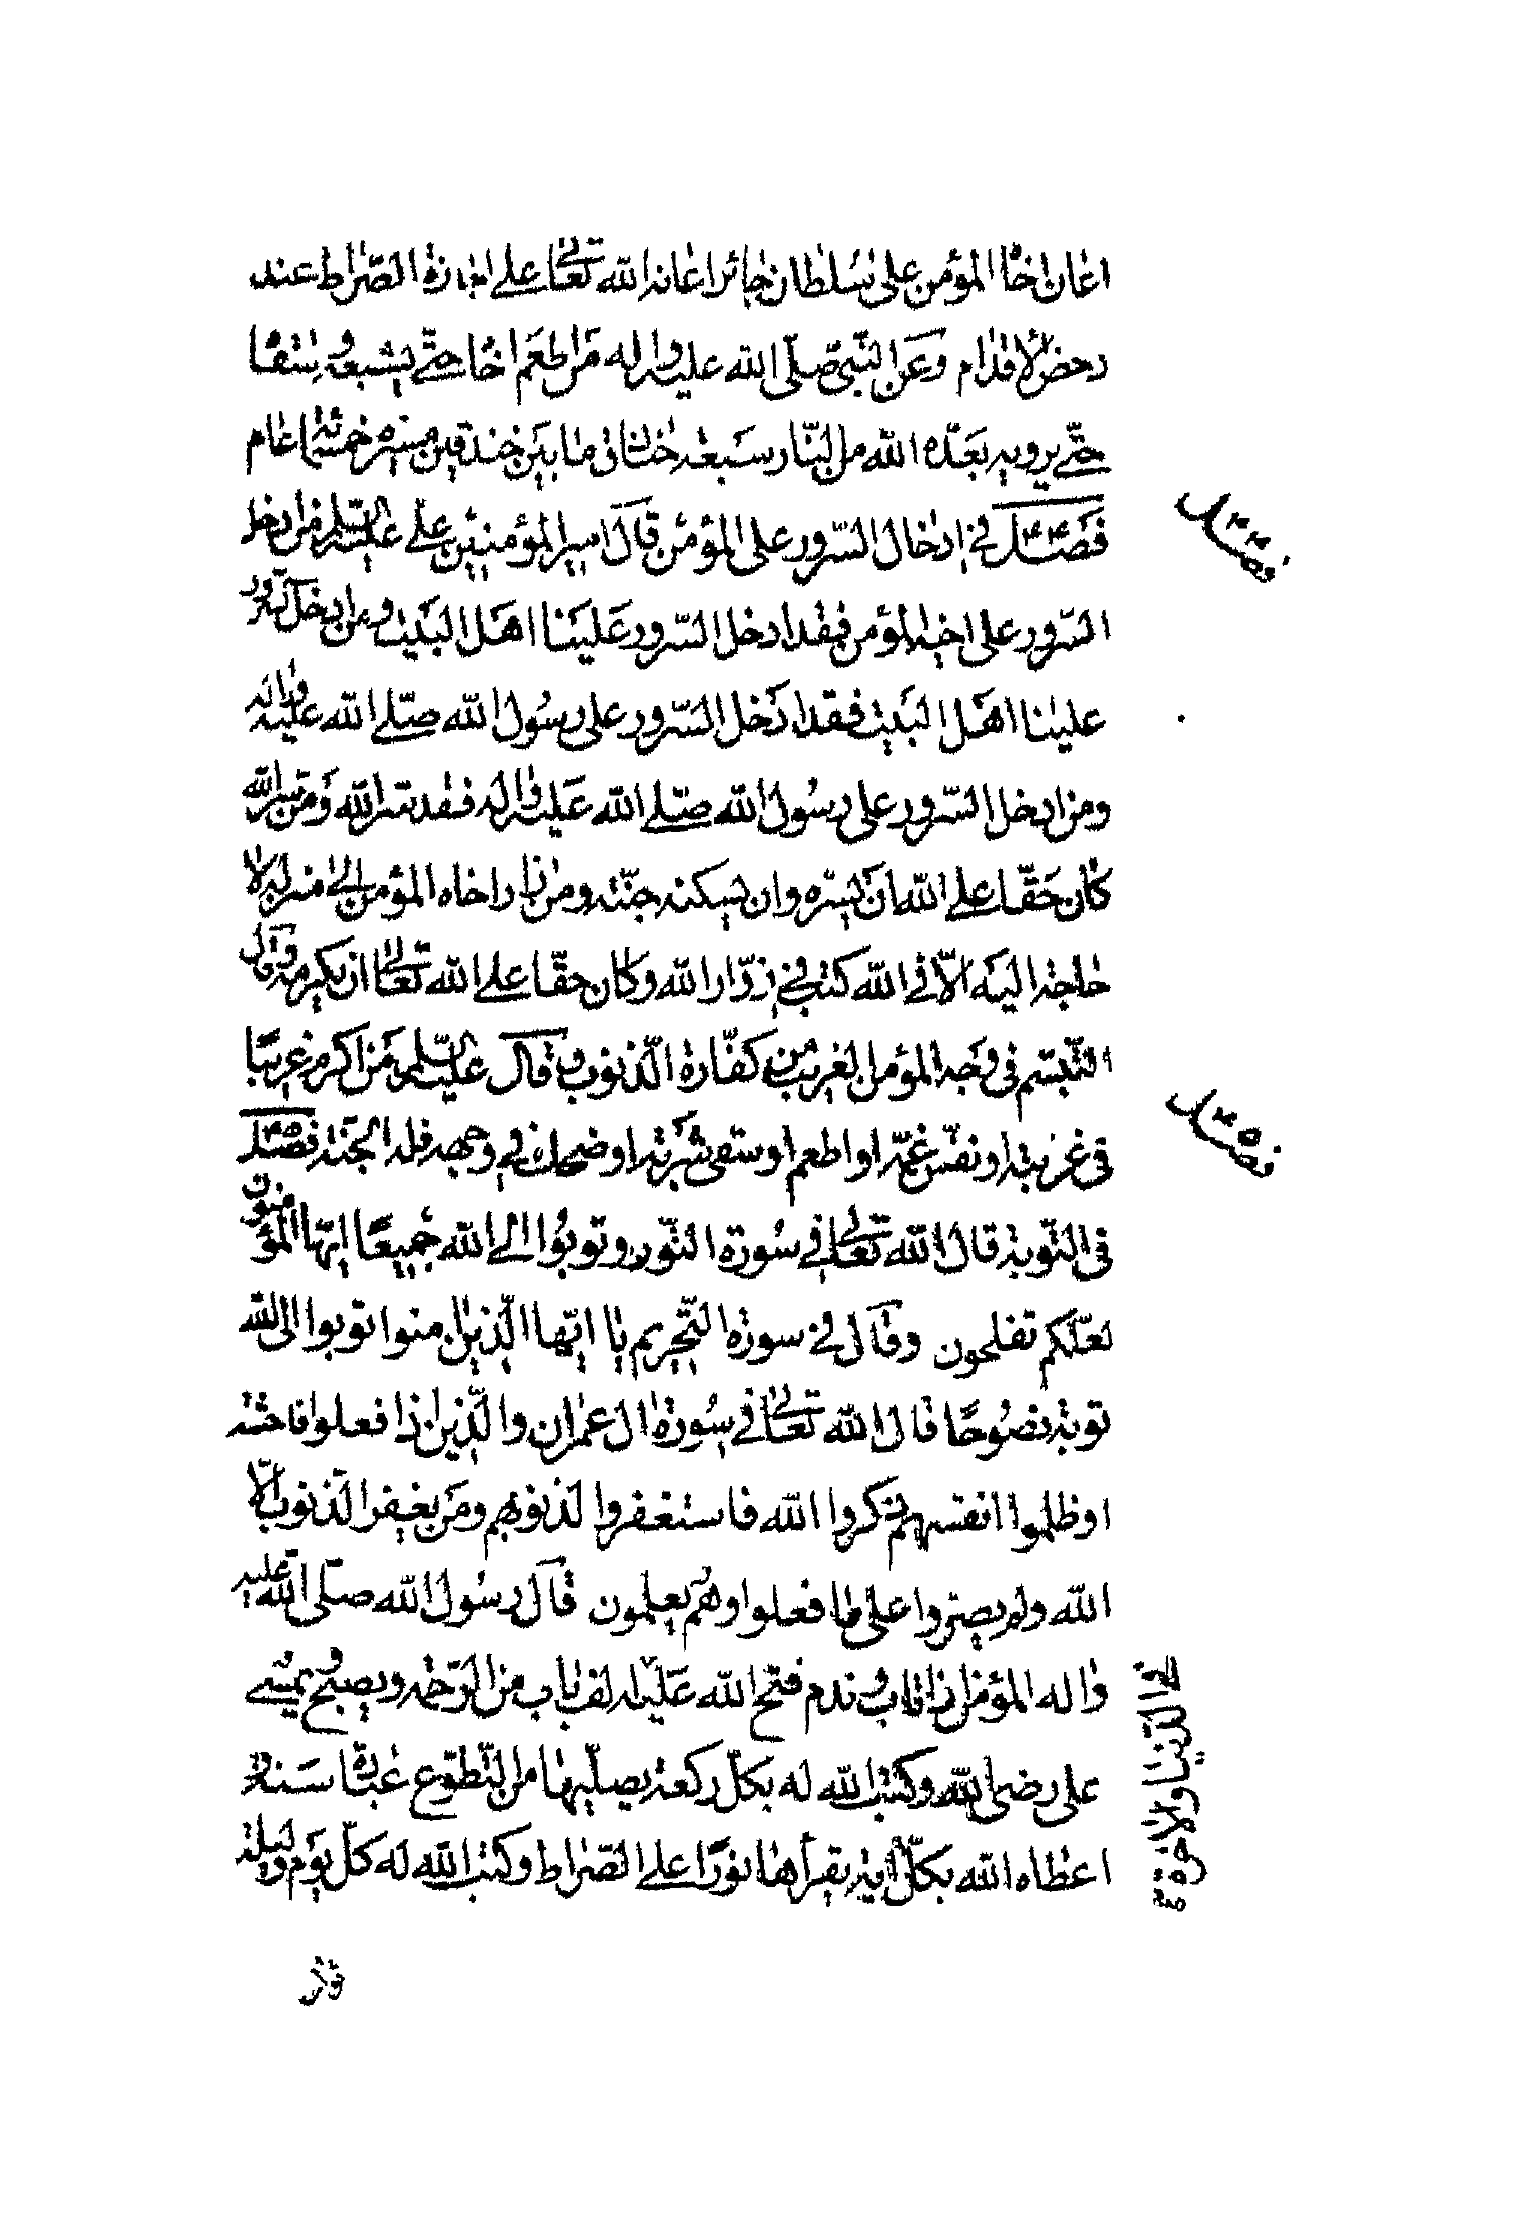 اعان اخاه المؤمن على سلطان جائر اعانه الله تعالى على اجازة الصراط عند
دحض الاقدام وعن النبي صلى الله عليه واله من اطعم اخا حتى يشبعه وسقا
حتى يرويه بعده الله من النار سبعة خنادق ما بين خندقين مسيرة خمسمائة عام
فصل في ادخال السرور على المؤمن قال امير المؤمنين علي عليه السلم من ادخل
السرور على اخيه المؤمن فقد ادخل السرور علينا اهل البيت ومن ادخل السرور
علينا اهل البيت فقد ادخل السرور على رسول الله صلى الله عليه واله
ومن ادخل السرور على رسول الله صلى الله عليه واله فقد سر الله ومن سر الله
كان حقا على الله ان يسره وان يسكنه جنته ومن زار اخاه المؤمن الى منزله لا
حاجة اليه الا في الله كتب في زوار الله وكان حقا على الله تعالى ان يكرمه وقال
التبسم في وجه المؤمن الغريب من كفارة الذنوب وقال عليه السلم من اكرم غريبا
في غربته او نفس غمه او اطعم او سقى شربة او ضحك في وجهه فله الجنة فصل
في التوبة قال الله تعالى في سورة النور وتوبوا الى الله جميعا ايها المؤمنون
لعلكم تفلحون وقال في سورة التحريم يا ايها الذين امنوا توبوا الى الله
توبة نصوحا قال الله تعالى في سورة ال عمران والذين اذا فعلوا فاحشة
او ظلموا انفسهم ذكروا الله فاستغفروا لذنوبهم ومن يغفر الذنوب الا
الله ولم يصروا على ما فعلوا وهم يعلمون قال رسول الله صلى الله عليه
واله المؤمن اذا تاب وندم فتح الله عليه الف باب من الرحمة ويصبح ويمسي
على رضى الله وكتب الله له بكل ركعة يصليها من التطوع عبادة سنة
اعطاه الله بكل اية يقرأها نورا على الصراط وكتب الله له كل يوم وليلة
فصل
فصل
في الدنيا والاخرة